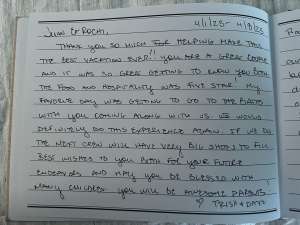 Juan & Rocht, 4/1/23 - 4/8/23
Thank you so much for helping make this
the best vacation ever!! You are a great couple
and it was so great getting to know you both
The food and hospitality was five star. My
favorite day was getting to go to the
with you coming along with us. We would
definitely do this experience again. If we do
the next crew will have very big shoes to fill
Best wishes to you both for your future
endeavors and may you be blessed with
many children. You will be awesome parents
♡ Trish & Dave